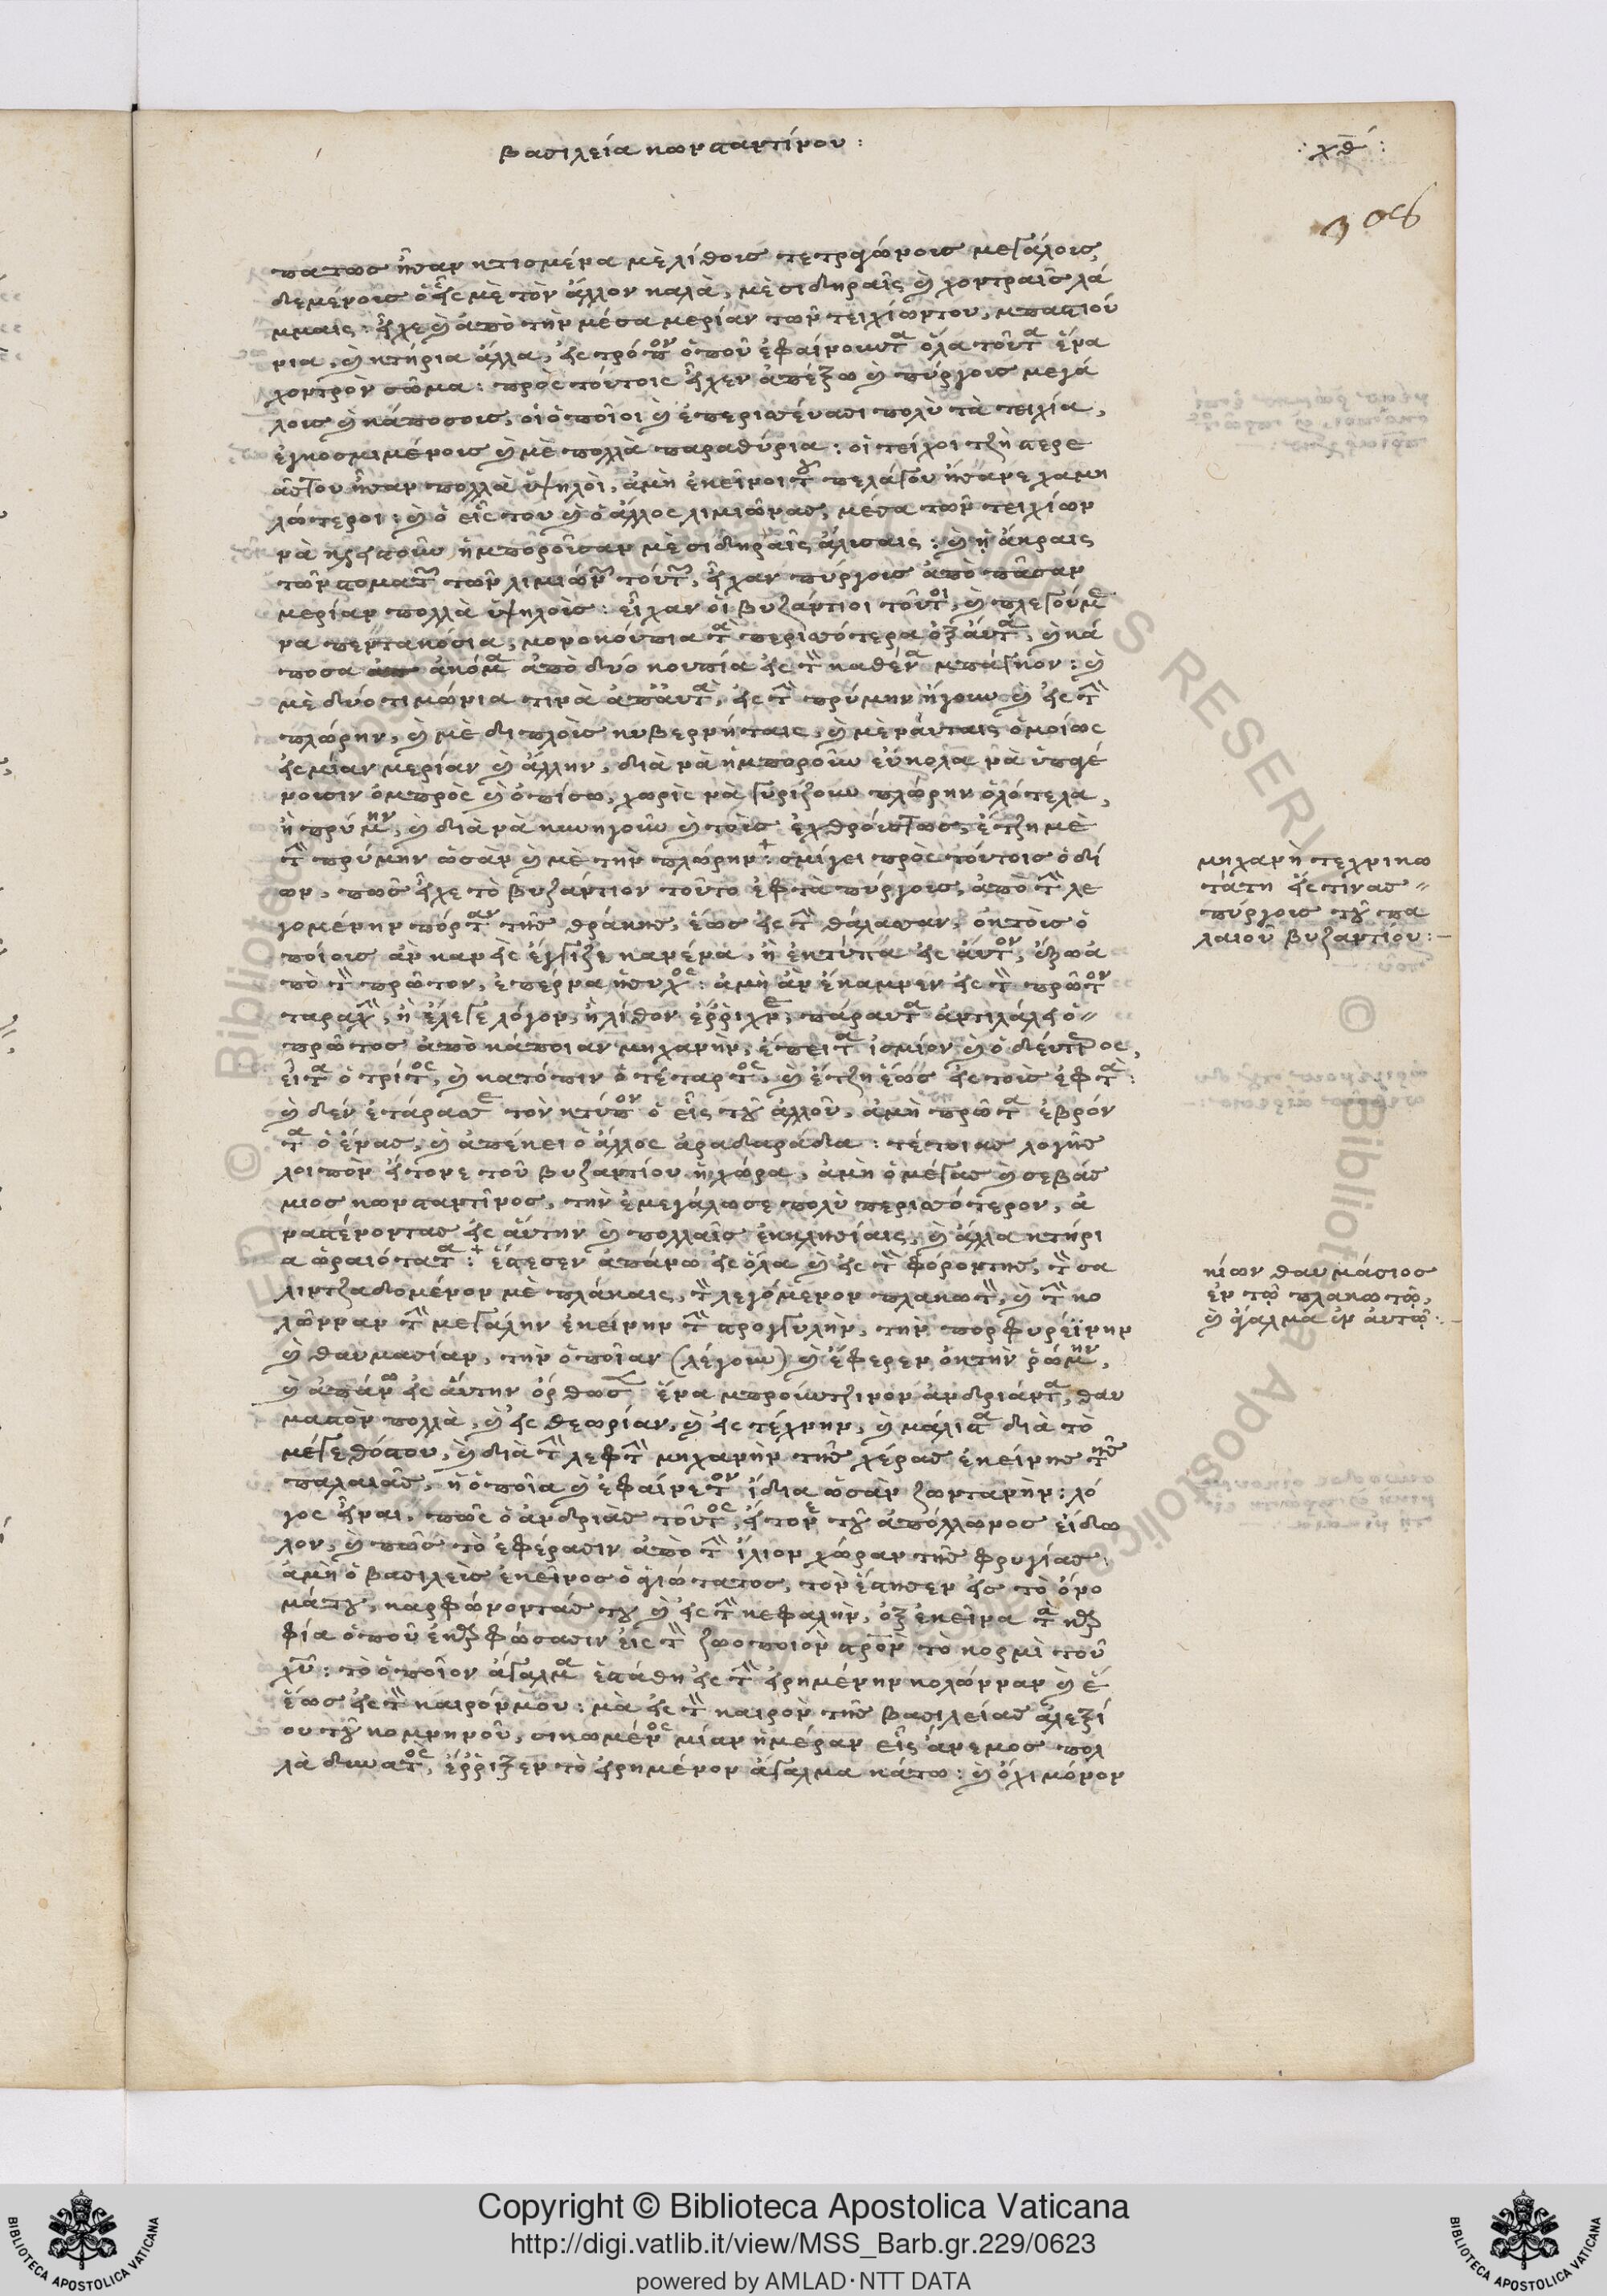 βασιλεία κωνσταντίνου :
: χδ :
308
πάτωσ ἦσαν κτισμένα μὲ λίθοισ τετραγώνοισ μεγάλοισ,
δεμένοισ ὁ εἷς μὲ τὸν ἄλλον καλὰ, μὲ σιδηραῖς καὶ χοντραῖσ λά
μμαις : εἶχε καὶ ἀπὸ τὴν μέσα μερίαν τῶν τειχίωντου, μπαστιού
νια, καὶ κτήρια ἄλλα, εἰς τρόπον ὁποῦ ἐφαίνουνταν ὅλα τοῦτα ἕνα
χοντρὸν σῶμα : πρὸς τούτοις εἶχεν ἀπέξω καὶ πύργοισ μεγά
λοισ καὶ κάποσοισ, οἱ ὁποῖοι καὶ ἐπερισσεύασι πολὺ τὰ τειχία,
ἐγκοσμιμένοισ καὶ μὲ πολλὰ παραθύρια : οἱ τείχοι τζὴ στερε
ᾶστου ἦσαν πολλὰ ὑψηλοὶ, ἀμὴ ἐκεῖνοι τοῦ πελάγου ἤσανε χαμη
λώτεροι : καὶ ὁ εἷς του καὶ ὁ ἄλλος λιμιῶνασ, μέσα τῶν τειχίων
τῶν στομάτων τῶν λιμιώνων τούτων, εἶχαν πύργοισ ἀπὸ πᾶσαν
μερίαν πολλὰ ὑψηλοὶσ : εἶχαν οἱ βυζάντιοι τοῦτοι, καὶ πλεγούμε
να πεντακόσια, μονοκούπια τὰ περισσότερα ὀξαύτα, καὶ κά
ποσα ἀκόμα ἀπὸ δυό κουπία εἰς τὸ καθένα μπάγκον : καὶ
μὲ δυό τιμώνια τινὰ ἀπαὐτὰ, εἰς τὴν πρύμην ἤγουν καὶ εἰς τὴν
πλώρην, καὶ μὲ διπλοὶσ κυβερνήταις, καὶ μὲ ναύταις ὁμοίως
εἰς μίαν μερίαν καὶ ἄλλην, διὰ νὰ ἠμποροῦν εὔκολα νὰ ὑπαγέ
νουσιν ὀμπρὸς καὶ ὀπίσω, χωρὶς νὰ γυρίζουν πλώρην ὁλότελα,
ἢ πρύμην, καὶ διὰ νὰ κυνηγοῦν καὶ τοὶσ ἐχθρούστωσ, ἔτζη μὲ
τὴν πρύμην ὡσὰν καὶ μὲ τὴν πλώρην : σμίγει πρὸς τούτοισ ὁ δί
ων, πῶσ εἶχε τὸ βυζάντιον τοῦτο ἑφτὰ πύργοισ, ἀπὸ τὴν λε
γομένην πόρταν τῆσ θράκησ, ἕωσ εἰς τὴν θάλασσαν, ὀκτοὶσ ὁ
ποίοισ ἂν κανεὶς ἔγγιζε κανένα, ἢ ἐκτύπα εἰς αὐτὸν, ἔξω ἀ
πὸ τὸ πρῶτον, ἐπέρνα ἥσυχος : ἀμὴ ἂν ἔκαμνεν εἰς τὸ πρῶτον
ταραχὴν, ἢ ἔλεγε λόγον, ἢ λίθον ἔρριχνε, πάραυτα ἀντιλάλει ὁ
πρῶτος ἀπὸ κάποιαν μηχανὴν, ἔπειτα ἰσμίον καὶ ὁ δεύτερος,
εἶτα ὁ τρίτος, καὶ κατόπιν ὁ τέταρτος, καὶ ἔτζη ἕωσ εἰς τοὶσ ἑφτὰ :
καὶ δὲν ἐτάρασσε τὸν κτύπον ὁ εἷς τοῦ ἀλλοῦ, ἀμὴ πρῶτα ἐβρόν
τα ὁ ἕνασ, καὶ ἀπέκει ὁ ἄλλος ἀραδαράδα : τέτοιασ λογῆσ
λοιπὸν ἤτονε τοῦ βυζαντίου ἡ χώρα, ἀμὴ ὁ μέγασ καὶ σεβάσ
μιοσ κωνσταντῖνοσ, τὴν ἐμεγάλωσε πολὺ περισσότερον, ἀ
νασταίνοντασ εἰς αὔτην καὶ πολλαῖσ ἐκκλησίαις, καὶ ἄλλα κτήρι
α ὡραιότατα : ἔστεσεν ἀπάνω εἰς ὅλα καὶ εἰς τὸ φόροντησ, τὸ σα
λιντζαδομένον μὲ πλάκαις, τὸ λεγόμενον πλακωτὸ, καὶ τὴν κο
λῶνναν τὴν μεγάλην ἐκείνην τὴν στρογγυλὴν, τὴν πορφυρεΐνην
καὶ θαυμασίαν, τὴν ὁποῖαν (λέγουν) καὶ ἔφερεν ὀκτὴν ῥώμην,
καὶ ἀπάνω εἰς αὔτην ὄρθωσε ἕνα μπροῦντζινον ἀνδριάντα, θαυ
μαστὸν πολλὰ, καὶ εἰς θεωρίαν, καὶ εἰς τέχνην, καὶ μάλιστα διὰ τὸ
μέγεθόστου, καὶ διὰ τὴν λεφτὴν μηχανὴν τῆσ χέρασ ἐκείνησ τῆσ
παλαιᾶσ, ἡ ὁποῖα καὶ ἐφαίνετον ἴδια ὡσὰν ζωντανὴν : λό
γος εἶναι, πῶς ὁ ἀνδριὰσ τοῦτος, ἤτονε τοῦ ἀπόλλωνοσ εἴδω
λον, καὶ πῶσ τὸ ἐφέρασιν ἀπὸ τὴν ἴλιον χώραν τῆσ φρυγίασ,
ἀμὴ ὁ βασιλεὺσ ἐκεῖνοσ ὁ ἁγιώτατοσ, τὸν ἔστησεν εἰσ τὸ ὄνο
μάτου, καρφώνοντάσ του καὶ εἰς τὴν κεφαλὴν, ὀξ ἐκεῖνα τὰ καρ
φία ὁποῦ ἐκαρφώσασιν εἰς τὸ ζωοποιὸν στρὸν τὸ κορμὶ τοῦ
χῦ : τὸ ὁποῖον ἄγαλμα ἐστάθη εἰς τὴν εἰρημένην κολῶνναν καὶ ἕ
ἕωσ εἰς τὸ καιρόνμου : μὰ εἰς τὸ καιρὸν τῆσ βασιλείασ ἀλεξί
ου τοῦ κομνηνοῦ, σικωμένος μίαν ἡμέραν εἷς ἄνεμοσ πολ
λὰ δυνατὸς, ἔρριξεν τὸ εἰρημένον ἄγαλμα κάτω : καὶ ὄχι μόνον
μηχανὴ τεχνικω
τάτη εἰς τίνασ
πύργοισ τοῦ πα
λαιοῦ βυζαντίου :
κίων θαυμάσιοσ
ἐν τῷ πλακωτῷ,
καὶ ἄγαλμα ἐν αὐτῷ :
© Biblioteca Apostolica Vaticana
Copyright © Biblioteca Apostolica Vaticana
http://digi.vatlib.it/view/MSS_Barb.gr.229/0623
powered by AMLAD·NTT DATA
BIBLIOTECA APOSTOLICA VATICANA
BIBLIOTECA APOSTOLICA VATICANA